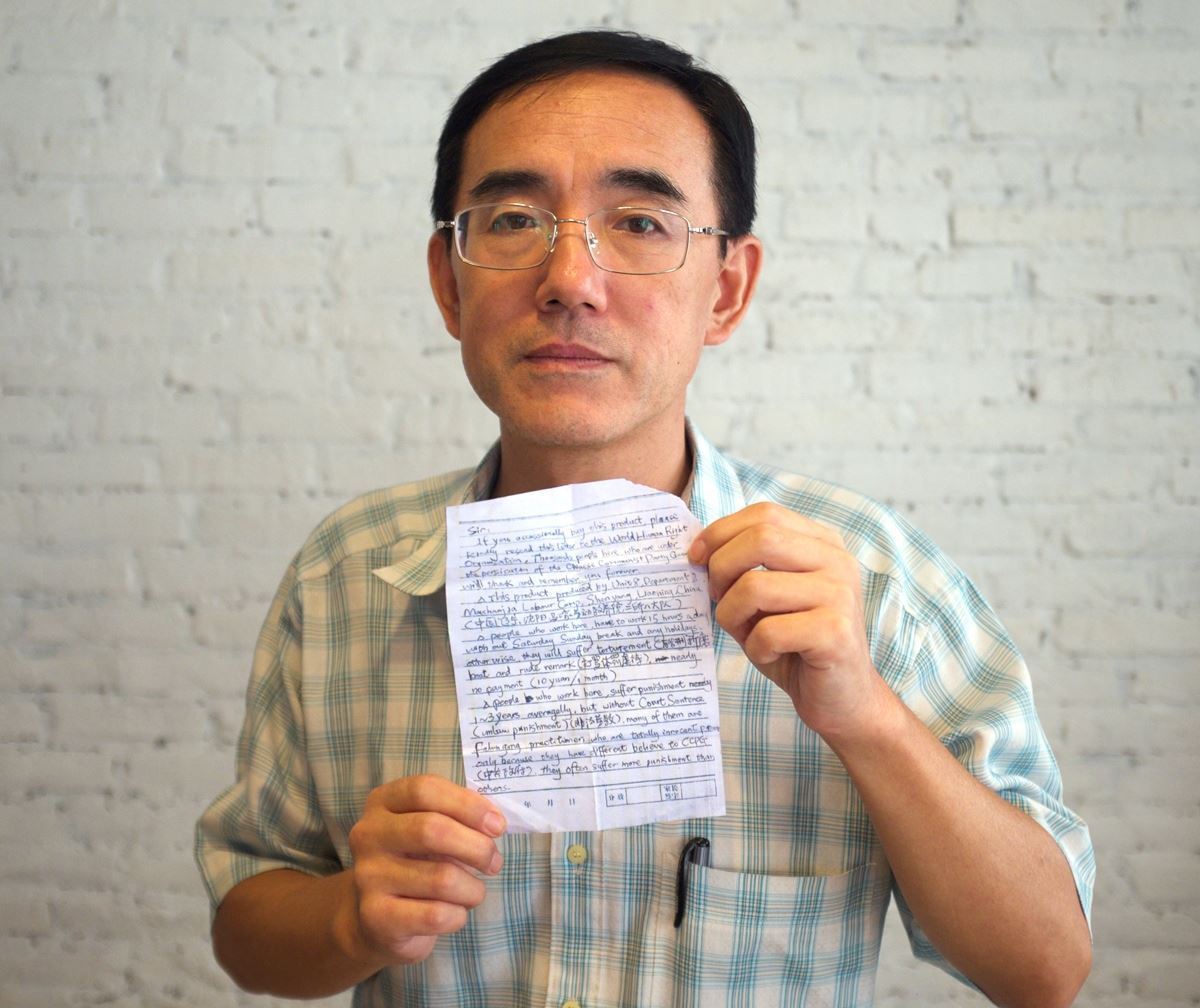 Sir,
If you occasionally buy this product, please
kindly resend this letter to the World Human Right
Organization. Thousands people here who are under
the persicution of the Chinese Communist Party Gover
will thank and remember you forever.
This product produced by Unit 8, Department 2,
Masanjia Labour Camp, Shenyang, Liaoning, China
(中国, 辽宁, 沈阳, 二所八大队)
people who work here, have to work 15 hours a day
with out Saturday Sunday break and any holidays,
otherwise, they will suffer torturement
beat and rude remark nearly
no payment (10 yuan / 1 month)
people who work here, suffer punishment nearly
1~3 years averagelly, but without Court Sentence
(unlaw punishment) (非法劳教). many of them are
Falungong practitioner, who are totally innocent people
only because they have different believe to CCPG
they often suffer more punishment than
others.
年 月 日